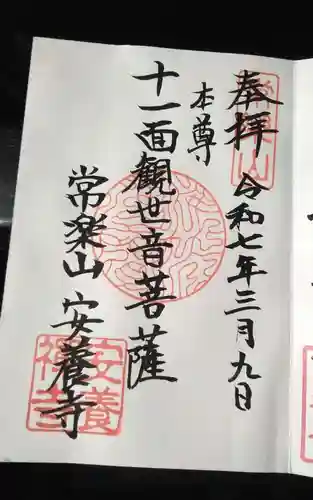 奉拝
令和七年三月九日
本尊
十一面観世音菩薩
常楽山
安養寺